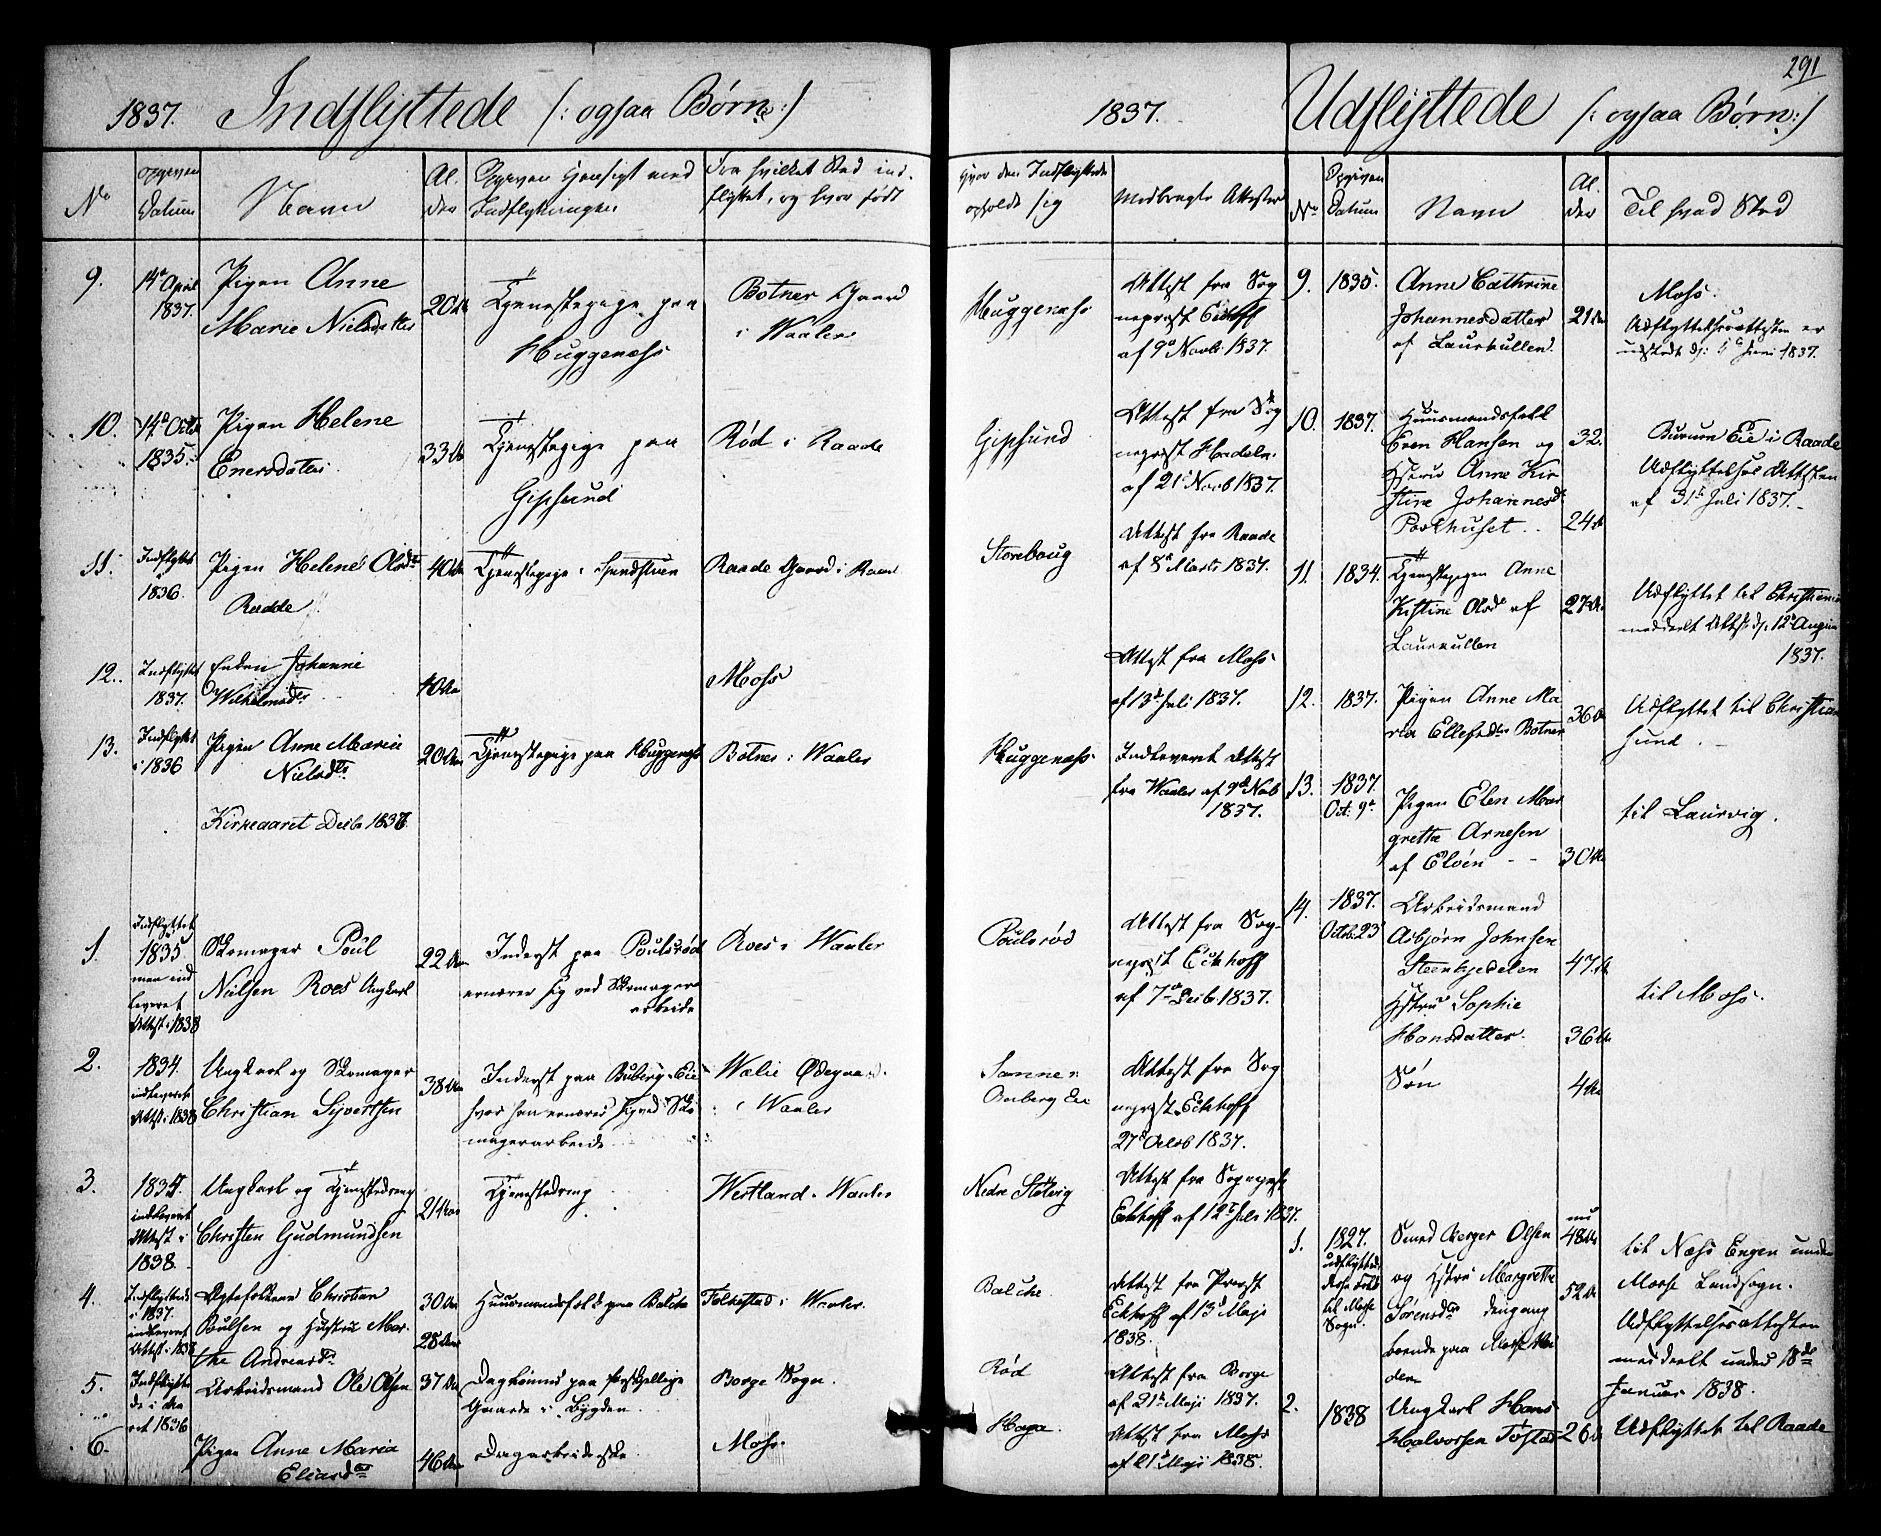 291
1837. Indflyttede (: ogsaa Børn :)
1837. Udflyttede (: ogsaa Børn :)
No
opgiven Datum
Navn
Alder
Opgiven Hensigt med Indflytningen
Fra hvilket Sted indflyttet, og hvor født
Hvor den Indflyttede opholde sig
Medbragte Attester
No
Opgiven Datum
Navn
Alder
Til hvad Sted
9.
14de April
1837.
Pigen Anne
Marie Nielsdatter
20 Aar
Tjenestepige paa
Huggenæss
Botner Gaard
i Waaler
Huggenæss
Attest fra Sog
nepræst Eckhoff
af 9de Novb: 1837.
10.
14de Octb
1835.
Pigen Helene
Enersdatter
33 Aar
Tjenestepige paa
Gipsund
Rød i Raade
Gipsund
Attest fra Sog
nepræst
af 21 Novb 1837.
11.
Indflyttet
1836.
Pigen Helene Olsdtr
Raade
40 Aar
Tjenestepige i
Raade Gaard i Raade
Storebaug
Attest fra Raade
af 8de Marts 1837.
12.
Indflyttet
1837.
Enken Johanne
Wilhelmsdtr
40 Aar
Moss
Attest fra Moss
af 13de Juli 1837.
13.
Indflyttet
i 1836
Pigen Anne Marie
Nielsdtr
20 Aar
Tjenestepige paa Huggenæss
Botner i Waaler
Huggenæss
Indleveret Attest
fra Waaler af 9de Nov
1837.
Kirkeaaret Decb 1837
1.
Indflyttet
1835
men ind
leveret
Attest i 1838
Skomager Poul
Nielsen Roes Ungkarl
22 Aar
Inderst paa Poulsrød
ernærer sig ved Skomager
arbeide
Roes i Waaler
Poulsrød
Attest fra Sog-
nepræst Eckhoff
af 7de Decb 1837.
2.
1834.
indleveret
Attst i 1838
Ungkarl og Skomager
Christian Syvertsen
38 Aar
Inderst paa Eie
hvor han ernærer sig ved Sko
magerarbeide
Ødegaard
i Waaler
Attest fra Sog
nepræst Eckhoff
27de Octb 1837.
3.
indleveret
Attest i
1838.
Ungkarl og Tjenestedreng
Christen Gudmundsen
21 Aar
Tjenestedreng
Westland i Waaler
Nedre
Attest fra Sognepræst
Eckhoff af 12te Juli 1837.
4.
Indflyttede
i 1837.
indleveret
Attst i 1838
Ægtefolkene Christian
Poulsen og Hustru Mar-
the Andreasdr
30 Aar
28 Aar
Huusmandsfolk paa Balche
Folkestad i Waaler
Balche
Attest fra Præst
Eckhoff af 13de Maji
1838.
5.
Indflytte
de i Aa
ret 1836
Arbeidsmand Ole Olsen
37 Aar
Daglønnes paa forskjellige
Gaarde i Bygden.
Borge Sogn.
Rød
Attest fra Borge
af 21de Maji 1837.
6.
Pigen Anne Maria
Eliasdtr
46 Aar
Dagarbeiderske
Moss.
Haga.
Attest fra Moss
af 21de Maji 1838.
9.
1835.
Anne Cathrine
Johannesdatter
af Laurkullen
21 Aar
Moss.
Udflyttelsesattesten er
udstedt d: 5te Juni 1837.
10.
1837.
Huusmandsfolk
Even Hansen og
Hustru Anne Kir
stine Johannesdr
Parkhuset.
32.
24 Aar
Eie i Raade
Udflyttelses Attesten
af 31te Juli 1837.
11.
1834.
Tjenestepigen Anne
Kistine Olsdr af
Laurkullen
27 Aar
Udflyttet til Christiania
meddeelt Attst d: 12te August
1837.
12.
1837.
Pigen Anne Ma
ria Ellefsdr Botner
36 Aar
Udflyttet til Christian
sund.
13.
1837.
Oct. 9de
Pigen Elen Mar
gretha Arnesen
af Eløen
30 Aar
til Laurvig.
14.
1837.
Octob: 23
Arbeidsmand
Asbjørn Johnsen
Steenkjedelen
Hstru Sophie
Hansdatter.
Søn
47. Aar
36 Aar
4 Aar
til Moss.
1.
1827.
udflyttede
disse Folk
til Mosse
Sogn.
Smed Berger Olsen
og Hstru Margrethe
Sørensdtr dengang
boende paa
nu
48 Aar
52 Aar
til Næss Engen under
Mosse Landsogn.
Udflyttelsesattesten
meddeelt under 18de
Januar 1838.
2.
1838
Ungkarl Hans
Halvorsen Tofstad
26 Aar
Udflyttet til Raade